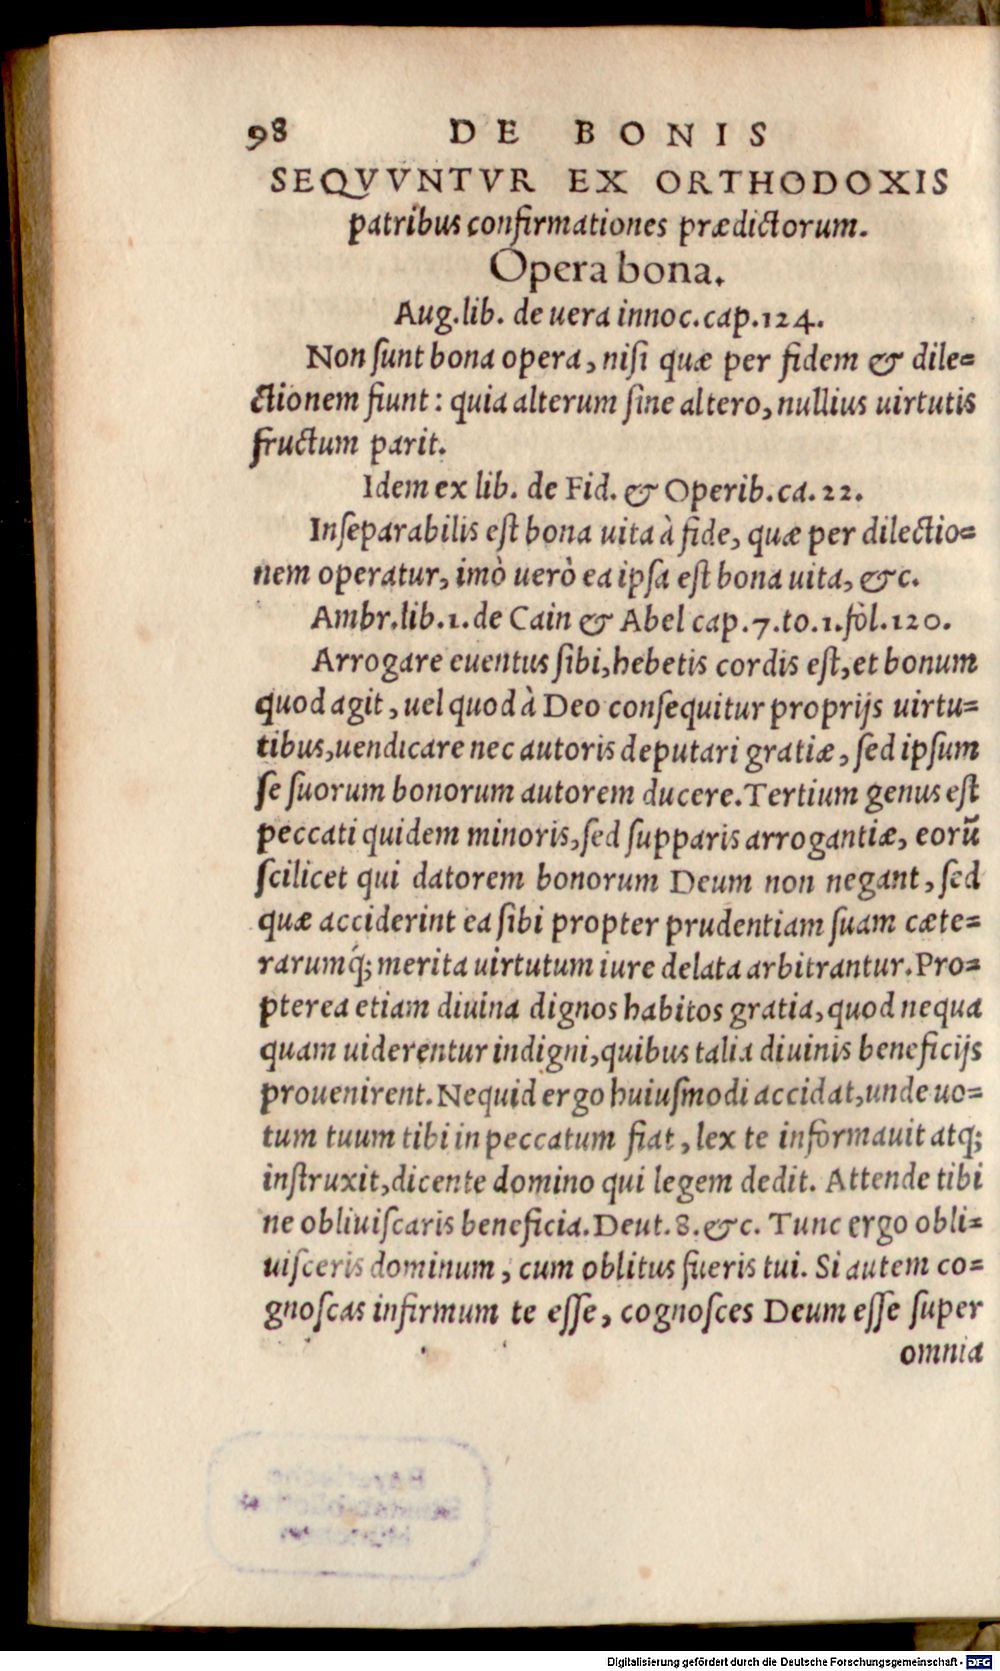 98 DE BONIS
SEQVVNTVR EX ORTHODOXIS
patribus confirmationes prædictorum.
Opera bona.
Aug.lib. de uera innoc.cap.124.
Non ſunt bona opera, niſi quæ per fidem & dile=
ctionem fiunt: quia alterum ſine altero, nullius uirtutis
fructum parit.
Idem ex lib. de Fid. & Operib.ca.22.
Inſeparabilis eſt bona uita à fide, quæ per dilectio=
nem operatur, imò uerò ea ipſa eſt bona uita, &c.
Ambr.lib.1.de Cain & Abel cap.7.to.1.fol.120.
Arrogare euentus ſibi, hebetis cordis eſt, et bonum
quod agit, uel quod à Deo conſequitur proprijs uirtu=
tibus, uendicare nec autoris deputari gratiæ, ſed ipſum
ſe ſuorum bonorum autorem ducere. Tertium genus eſt
peccati quidem minoris, ſed ſupparis arrogantiæ, eorũ
ſcilicet qui datorem bonorum Deum non negant, ſed
quæ acciderint ea ſibi propter prudentiam ſuam cæte=
rarumq́; merita uirtutum iure delata arbitrantur. Pro=
pterea etiam diuina dignos habitos gratia, quod nequa
quam uiderentur indigni, quibus talia diuinis beneficijs
prouenirent. Nequid ergo huiuſmodi accidat, unde uo=
tum tuum tibi in peccatum fiat, lex te informauit atq;
inſtruxit, dicente domino qui legem dedit. Attende tibi
ne obliuiſcaris beneficia. Deut.8.&c. Tunc ergo obli=
uiſceris dominum, cum oblitus fueris tui. Si autem co=
gnoſcas infirmum te eſſe, cognoſces Deum eſſe ſuper
omnia
Digitalisierung gefördert durch die Deutsche Forschungsgemeinschaft - DFG